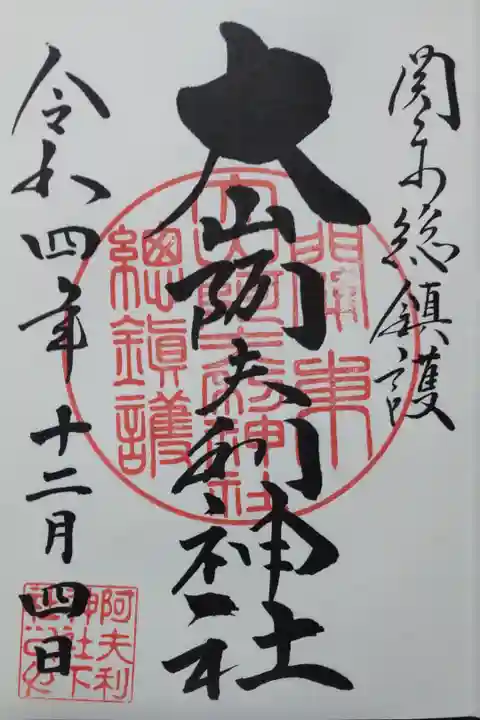 関東総鎮護
大山阿夫利神社
令和四年十二月四日
關東
大山阿夫利神社
總鎭護
阿夫利
神社下